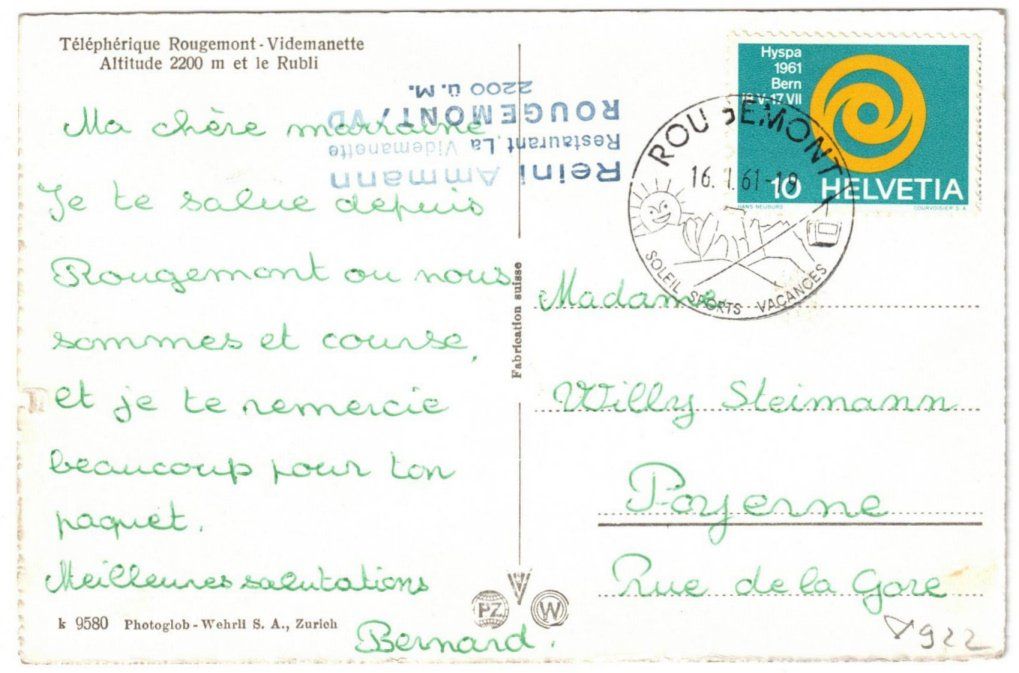 Téléphérique Rougemont-Videmanette
Altitude 2200 m et le Rubli
Reini Ammann
Restaurant La Videmanette
ROUGEMONT/VD
2200 ü.M.
Ma chère marraine
Je te salue depuis
Rougemont ou nous
sommes et course,
et je te remercie
beaucoup pour ton
paquet.
Meilleures salutations
Bernard.
k 9580 Photoglob-Wehrli S. A., Zurich
Fabrication suisse
PZ W
Hyspa
1961
Bern
18.V-17.VII
10 HELVETIA
HANS NEUBURG COURVOISIER S.A.
ROUGEMONT
16. 61-19
SOLEIL SPORTS VACANCES
Madame
Willy Steimann
Payerne
Rue de la Gare
922